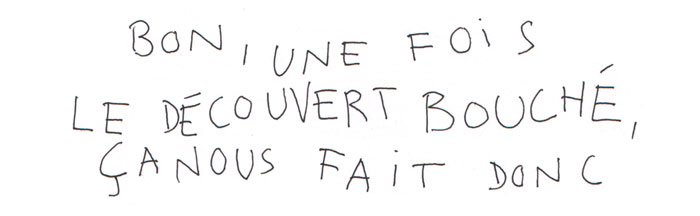 BON, UNE FOiS
LE DÉCOUVERT BOUCHÉ,
ÇA NOUS FAiT DONC